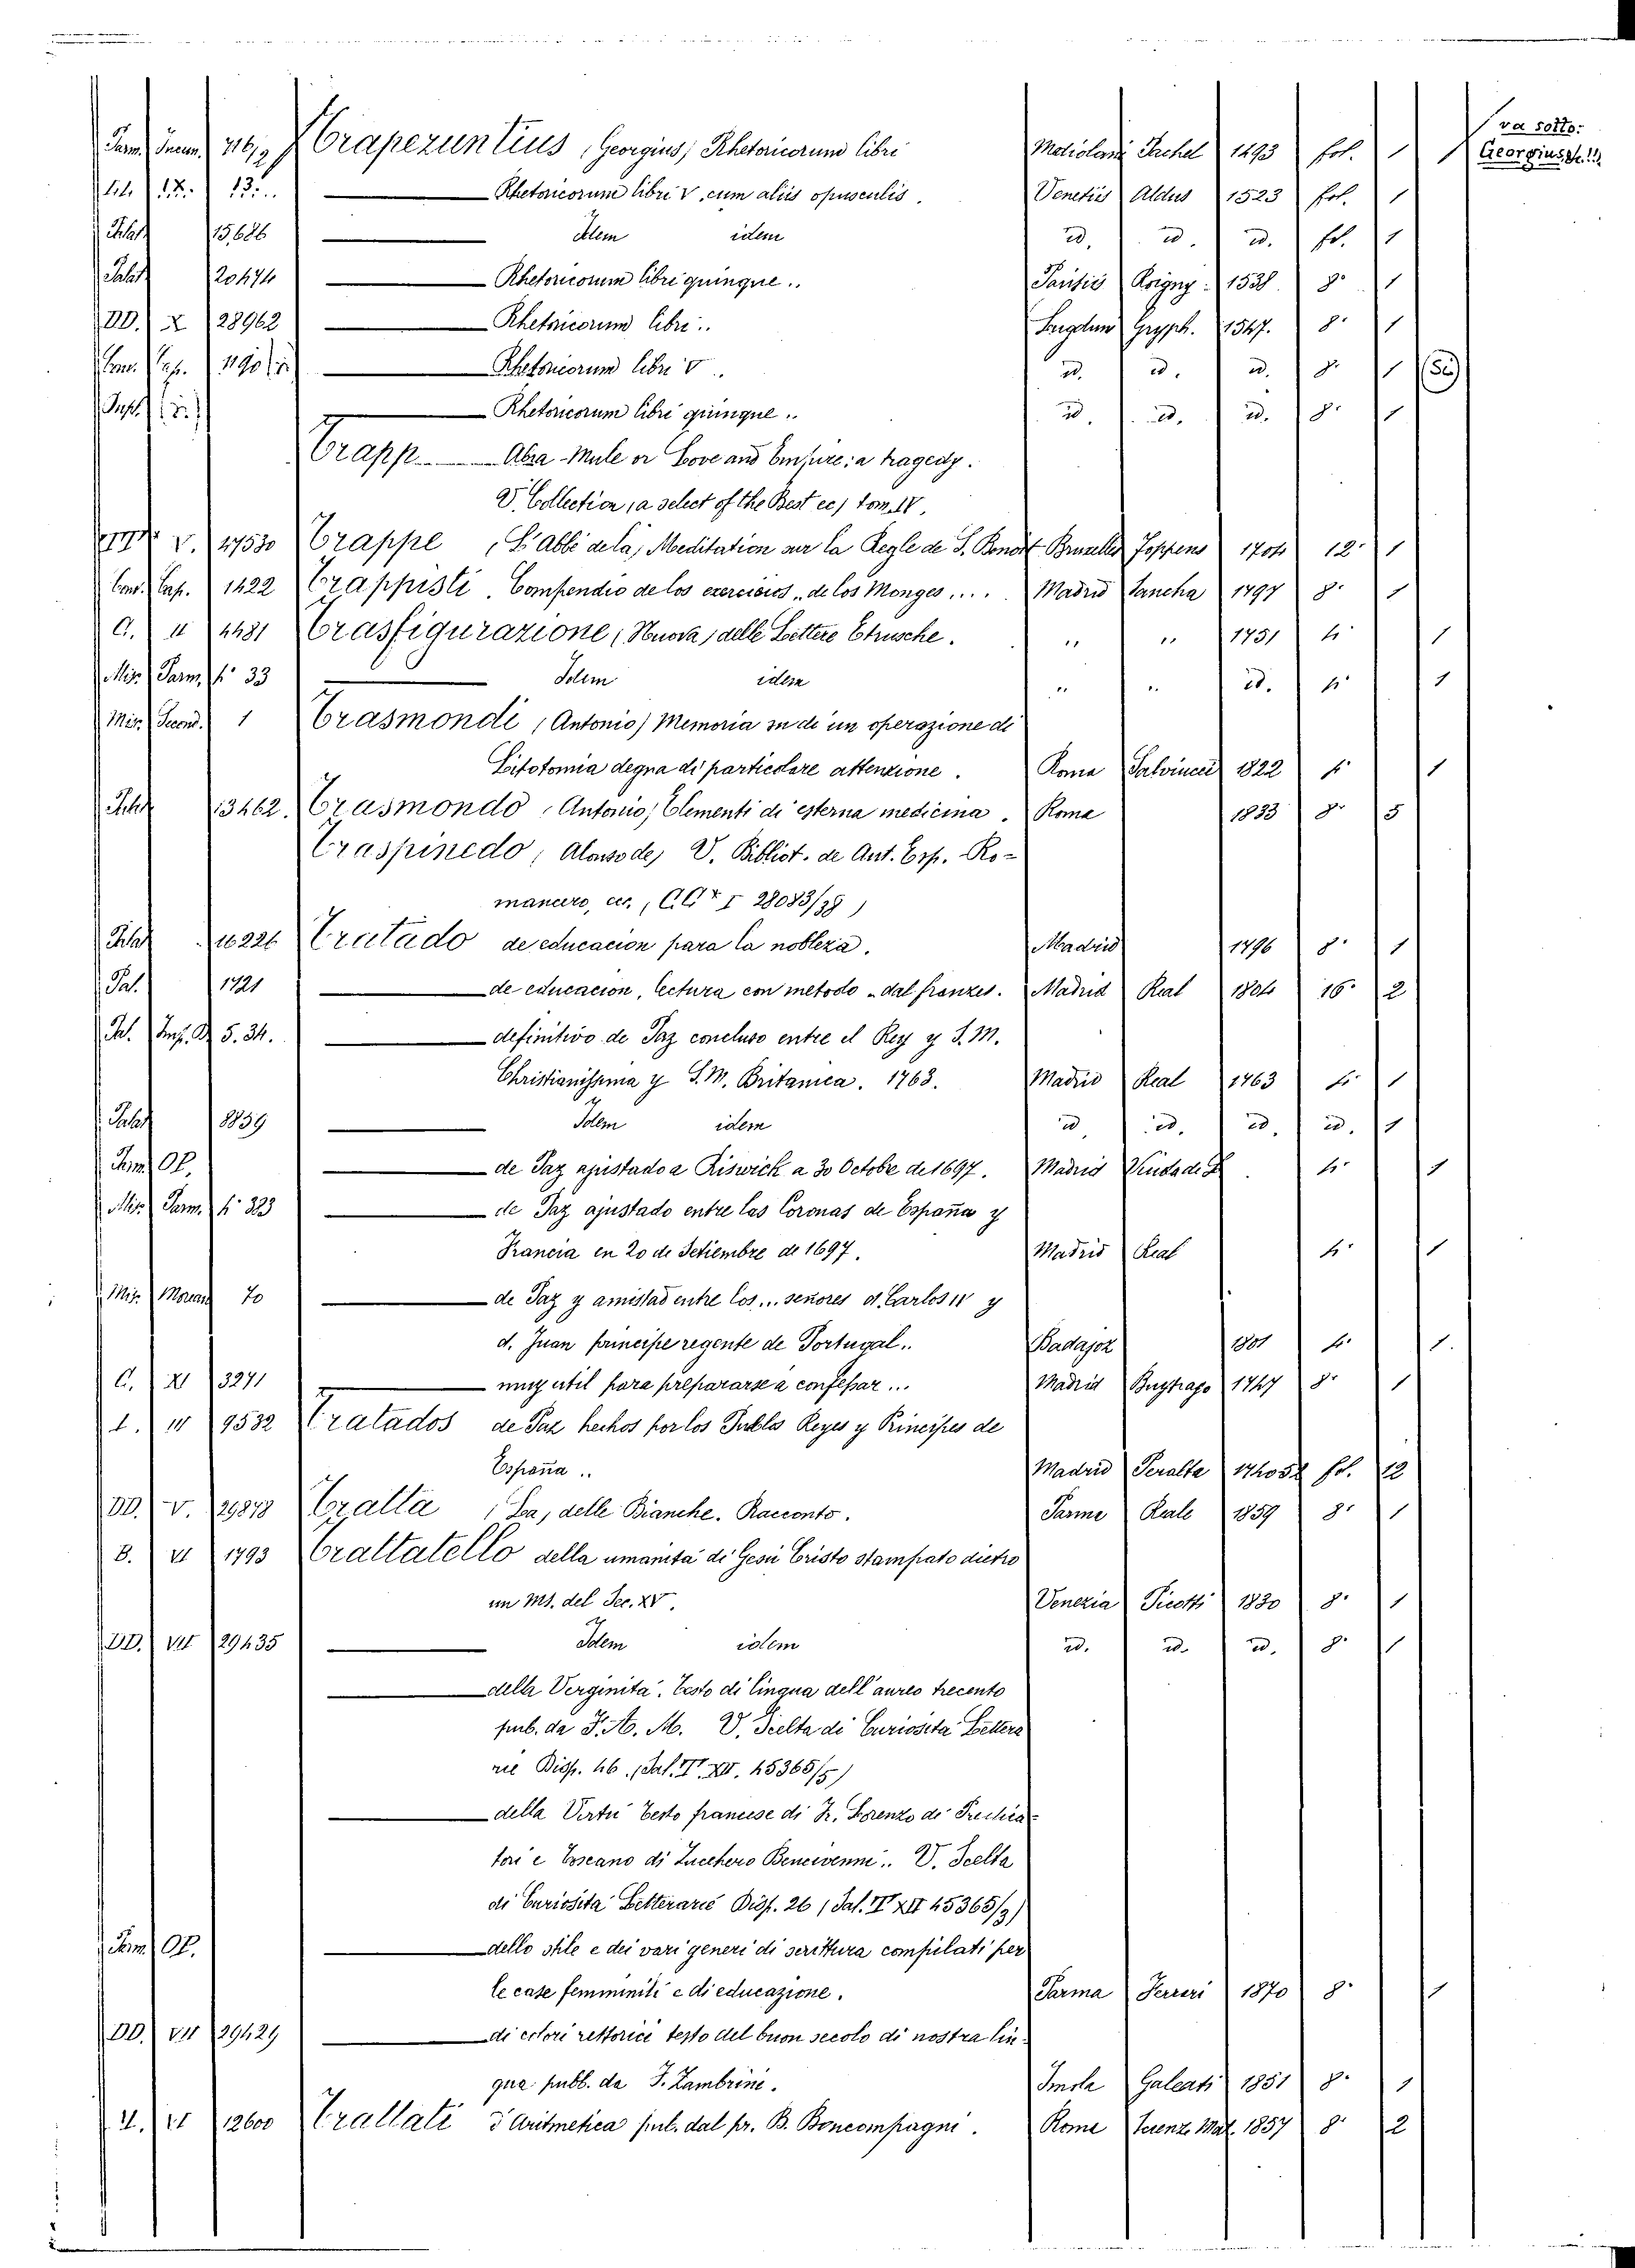 va sotto:
Georgius
Trapezuntius (Georgius) Rhetoricorum libri Mediolani Pachel 1493 fol. 1
13. Rhetoricorum libri V, cum aliis opusculis. Venetiis Aldus 1523 fol. 1
Palat 15686 Idem idem id. id. id. fol. 1
Palat 20474 Rhetoricorum libri quinque.. Parisiis Roigny 1538. 8° 1
DD. X 28962 Rhetoricorum libri.. Lugduni Gryph. 1547. 8° 1
Rhetoricorum libri V.. id. id. id. 8° 1
Rhetoricorum libri quinque.. id. id. id. 8° 1
Trapp Abra-Mule or Love and Empire: a tragedy.
V. Collection (a select of the Best ec) tom. IV.
V. 47530 Trappe (L'Abbé de la) Meditation sur la Regle de S. Benoit Bruxelles Foppens 1704 12° 1
Conv. Cap. 1422 Trappisti. Compendio de los exercicios.. de los Monges.... Madrid Sancha 1797 8° 1
C. II 4481 Trasfigurazione (Nuova) delle Lettere Etrusche. " " 1751 4° 1
Mis. Parm. 4° 33 Idem idem " " id. 4° 1
Mis. Second. 1 Trasmondi (Antonio) Memoria su di un operazione di
Litotomia degna di particolare attenzione. Roma Salviucci 1822 4° 1
Palat 13462. Trasmondo (Antonio) Elementi di esterna medicina. Roma 1833 8° 5
Traspinedo (Alonso de) V. Bibliot. de Aut. Esp. Ro-
mancero, ecc. (CC* I 28083/38)
Palat 16226 Tratado de educacion para la nobleza. Madrid 1796 8° 1
Pal. 1721 de educacion, lectura con metodo.. dal franzes. Madrid Real 1804 16° 2
Pal. Imp. 5. 34. definitivo de Paz concluso entre el Rey y S. M.
Christianissima y S. M. Britanica. 1763. Madrid Real 1763 4° 1
Palat 8859 Idem idem id. id. id. id. 1
OP. de Paz ajustado a Riswick a 30 Octobre de 1697. Madrid Viuda de 4° 1
Mis. Parm. 4° 323 de Paz ajustado entre las Coronas de España y
Francia en 20 de Setiembre de 1697. Madrid Real 4° 1
Mis. 70 de Paz y amistad entre los... señores d. Carlos IV y
d. Juan principe regente de Portugal.. Badajoz 1801 4° 1.
C. XI 3271 muy util para prepararse a confessar... Madrid Buytrago 1747 8° 1
L. III 9532 Tratados de Paz hechos por los Pueblos Reyes y Principes de
España.. Madrid Peralta 1740 52 fol. 12
DD. V. 29878 Tratta (La) delle Bianche. Racconto. Parma Reale 1859 8° 1
B. VI 1793 Trattatello della umanità di Gesù Cristo stampato dietro
un MS. del Sec. XV. Venezia Picotti 1830 8° 1
DD. VII 29435 Idem idem id. id. id. 8° 1
della Verginità. Testo di lingua dell'aureo trecento
pub. da F. A. M. V. Scelta di Curiosità Lettera
rie Disp. 46. (Pal. II XII. 45365/5)
della Virtù testo francese di Fr. Lorenzo de' Predica-
tori e Toscano di Zucchero Bencivenni.. V. Scelta
di Curiosità Letterarie Disp. 26 (Pal. II XII 45365/3)
OP. dello stile e dei vari generi di scrittura compilati per
le case femminili e di educazione. Parma Ferrari 1870 8° 1
DD. VII 29429 di colori rettorici testo del buon secolo di nostra lin-
gua pubb. da F. Zambrini. Imola Galeati 1851 8° 1
12600 Trattati d'Aritmetica pub. dal pr. B. Boncompagni. Roma Scienze Mat. 1857 8° 2